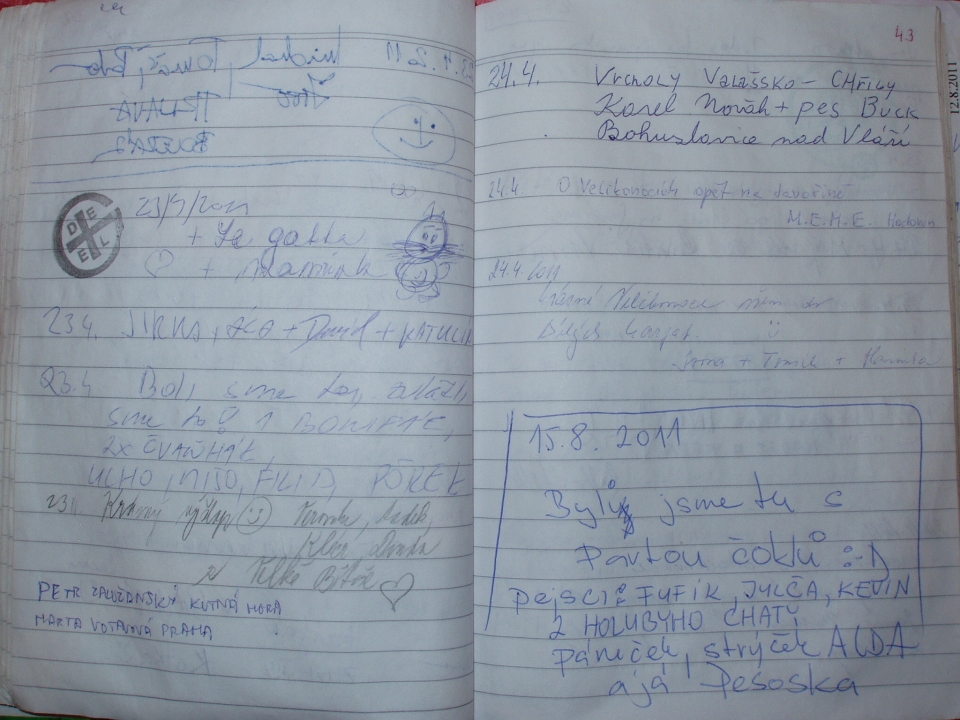 23.4.2011 Michal, Tomáš,
TRNAVA
DEEL
23/4/2011
+ Le gatta
+ Mamink
23.4. JIRKA, + David + KATULIK
23.4 Boli sme tu, zvládli
sme to 1 BONIFÁK,
2x ČVAŇHÁK,
UCHO, MIŠO, FILIP, PÓREK
23.4. Krásný výšlap :) Veronika, Radek,
z Velké Bíteše
PETR ZALUŽANSKÝ KUTNÁ HORA
MARTA VOTAVOVÁ PRAHA
43
12.8.2011
24.4. Vrcholy Valašsko - CHřiby
Karel Novák + pes Buck
Bohuslavice nad Vláří
24.4. O Velikonocích opět na Javořině
M.E.M.E. Hodonín
24.4.2011
krásné Velikonoce všem z
Bílých Karpat :)
+ +
15.8. 2011
Byli jsme tu s
Partou čoklů :-)
pejsci: FUFÍK, JULČA, KEVIN
Z HOLUBYHO CHATY
páníček, strýček ALDA
a já Pesoska